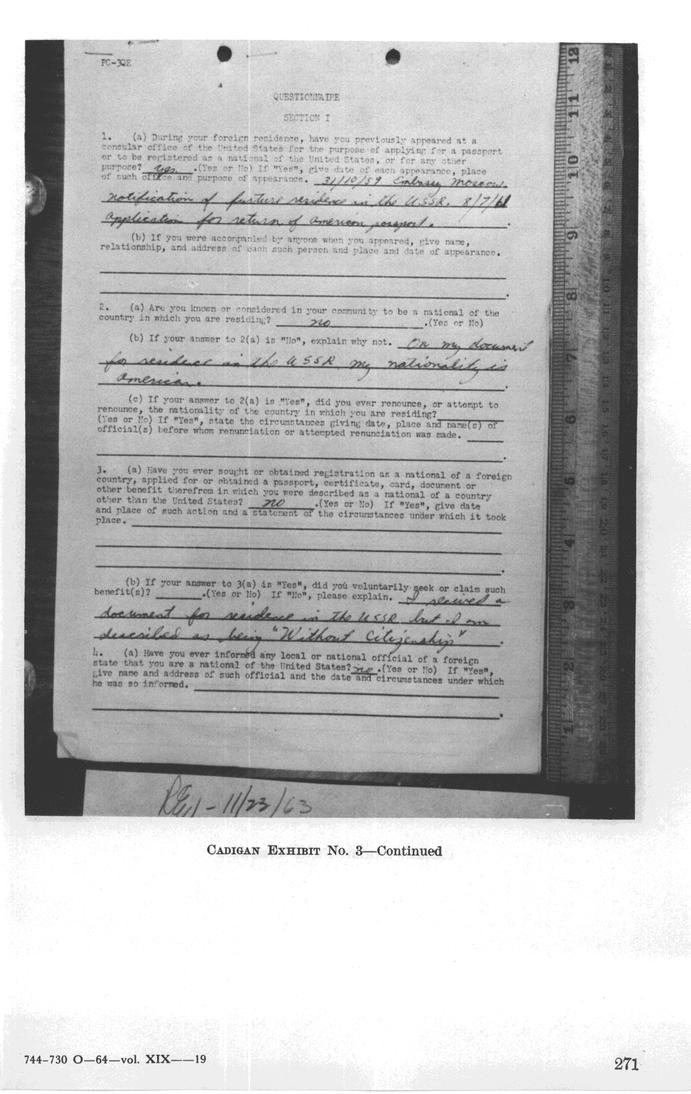 FC-32E
QUESTIONNAIRE
SECTION I
1. (a) During your foreign residence, have you previously appeared at a
consular office of the United States for the purpose of applying for a passport
or to be registered as a national of the United States, or for any other
purpose? yes .(Yes or No) If "Yes", give date of each appearance, place
of such office and purpose of appearance. 31/10/59 Embassy Moscow.
notification of furture residence in the USSR. 8/7/61
application for return of american passport.
(b) If you were accompanied by anyone when you appeared, give name,
relationship, and address of each such person and place and date of appearance.
2. (a) Are you known or considered in your community to be a national of the
country in which you are residing? no .(Yes or No)
(b) If your answer to 2(a) is "No", explain why not. On my document
for residence in the USSR my nationality is
american.
(c) If your answer to 2(a) is "Yes", did you ever renounce, or attempt to
renounce, the nationality of the country in which you are residing?
(Yes or No) If "Yes", state the circumstances giving date, place and name(s) of
official(s) before whom renunciation or attempted renunciation was made.
3. (a) Have you ever sought or obtained registration as a national of a foreign
country, applied for or obtained a passport, certificate, card, document or
other benefit therefrom in which you were described as a national of a country
other than the United States? no .(Yes or No) If "Yes", give date
and place of such action and a statement of the circumstances under which it took
place.
(b) If your answer to 3(a) is "Yes", did you voluntarily seek or claim such
benefit(s)? .(Yes or No) If "No", please explain. I a
document for residence in the USSR but I am
described as being "Without Citizenship"
4. (a) Have you ever informed any local or national official of a foreign
state that you are a national of the United States? no .(Yes or No) If "Yes",
give name and address of such official and the date and circumstances under which
he was so informed.
11/23/63
CADIGAN EXHIBIT No. 3—Continued
744-730 O—64—vol. XIX——19
271